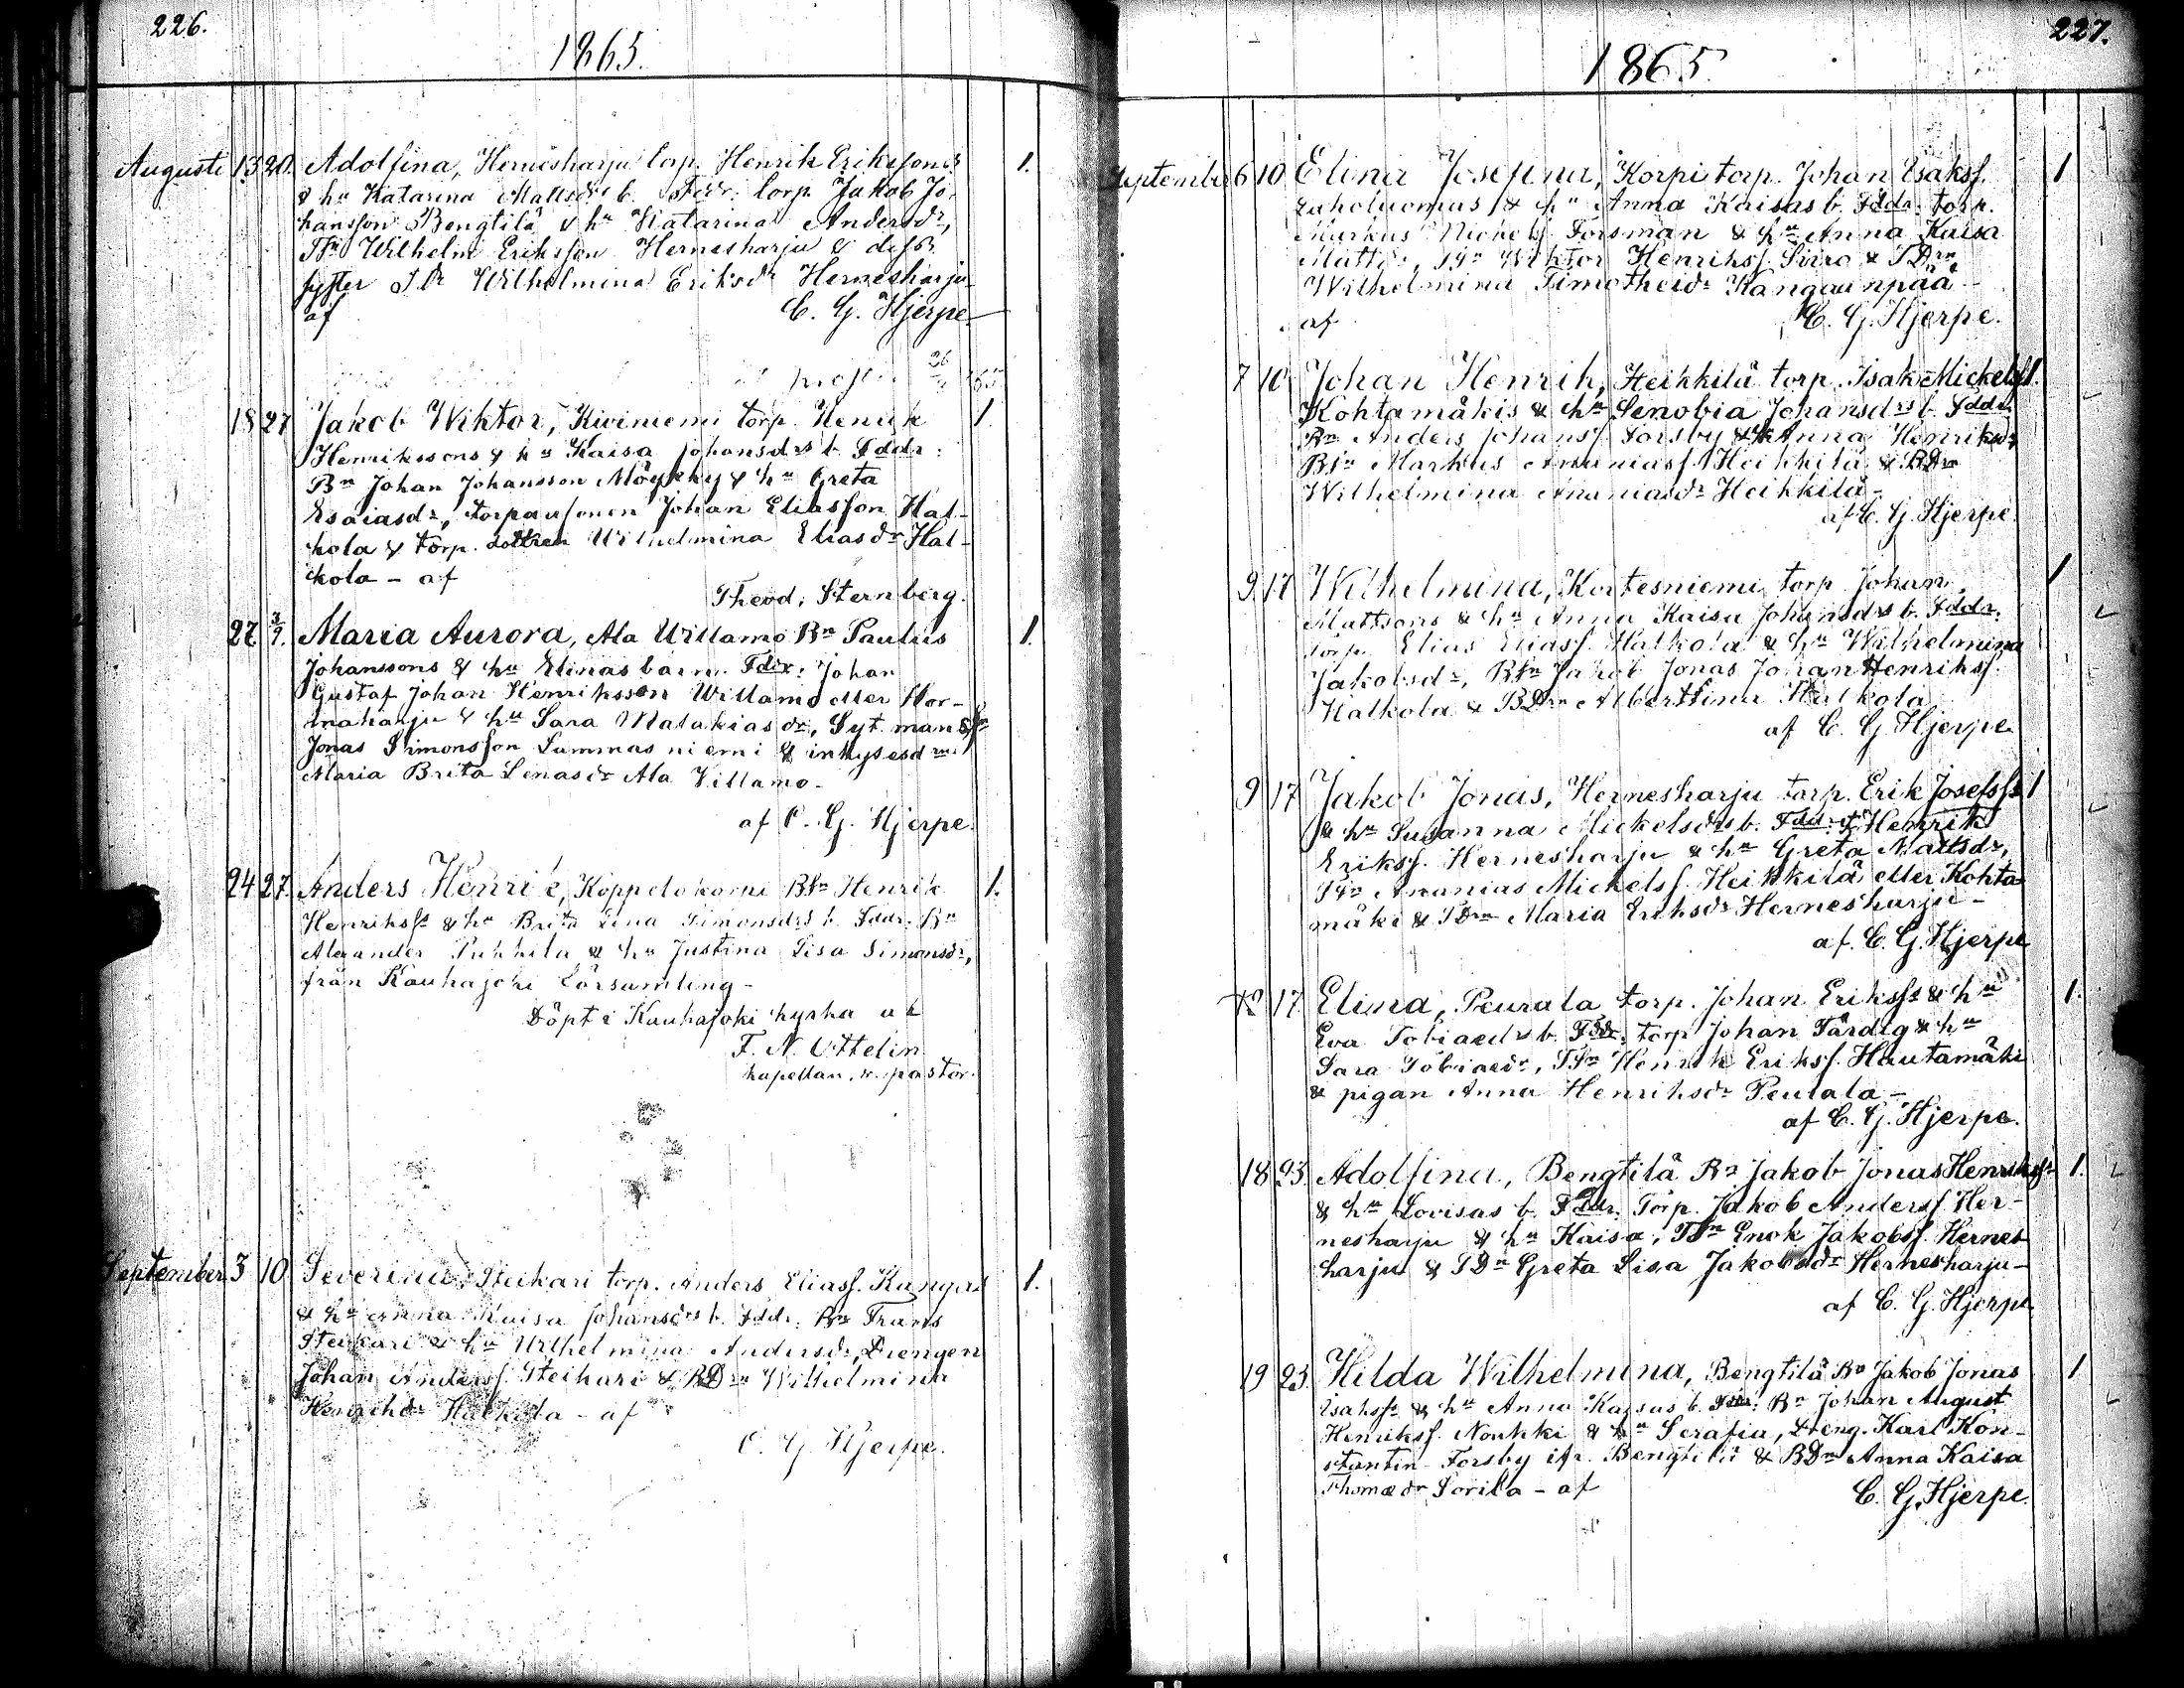 226.
1865.
Augusti 13 20. Adolfina, Hernesharju torp. Henrik Erikssons
& hu Katarina Mattsdrs b. Fddr: torp. Jakob Jo-
hansson Bengtilä & hu Katarina Andersdr,
Wilhelm Eriksson Hernesharju & dess
syster Wilhelmina Eriksdr Hernesharju
af C. G. Hjerpe
18 27 Jakob Wiktor, Kiviniemi torp. Henrik 1.
Henrikssons & hu Kaisa Johansdrs b. Fddr:
Bn Johan Johansson Möykky & hu Greta
Esaiasdr, torparesonen Johan Eliasson Hal-
kola & torp. dottren Wilhelmina Eliasdr Hal-
kola - af
Theod. Sternberg.
27 3/9. Maria Aurora, Ala Willamo Bn Paulus 1.
Johanssons & hu Elinas barn. Fddr: Johan
Gustaf Johan Henriksson Willamo eller Hor-
maharju & hu Sara Malakiasdr, Syt. man
Jonas Simonsson Lammasniemi & inhysesdrn
Maria Brita Lenasdr Ala Villamo -
af C. G. Hjerpe.
24 27. Anders Henrik, Koppelokorni BSn Henrik 1.
Henrikss & hu Brita Lina Simonsdrs b. Fddr: Bn
Alexander Pukkila & hu Justina Lisa Simonsdr,
från Kauhajoki församling -
Döpt i Kauhajoki kyrka af
F. N. Ottelin
kapellan, v. pastor.
September 3 10 Severina, Steikari torp. Anders Eliass. Kangas 1.
& hu Anna Kaisa Johansdrs b. Fddr: Bn Frans
Steikari & hu Wilhelmina Andersdr, Drengen
Johan Anderss. Steikari & BDrn Wilhelmina
Henriksdr Halkola - af
C. G. Hjerpe.
227.
1865.
September 6 10 Elina Josefina, Korpi torp. Johan Esakss. 1
& hu Anna Kaisas b. Fddr: torp.
Markus Mickelss. Forsman & hu Anna Kaisa
Mattsdr, TSn Wiktor Henrikss. Sirro & TDrn
Wilhelmina Timotheidr Kangaanpää -
af C. G. Hjerpe.
7 10 Johan Henrik, Heikkilä torp. Isak Mickelss 1.
Kohtamäkis & hu Senobia Johansdrs b. Fddr:
Bn Anders Johanss. Forsby & hu Anna Henriksdr,
BSn Markus Ananiass. Heikkilä & BDrn
Wilhelmina Ananiasdr Heikkilä -
af C. G. Hjerpe.
9 17 Wilhelmina, Kortesniemi torp. Johan 1
Mattsons & hu Anna Kaisa Johansdrs b. Fddr:
torp. Elias Eliass. Halkola & hu Wilhelmina
Jakobsdr, BSn Jakob Jonas Johan Henrikss.
Halkola & BDrn Albertina Halkola
af C. G. Hjerpe.
9 17 Jakob Jonas, Hernesharju torp. Erik Josefss 1
& hu Susanna Mickelsdrs b. Fddr: t. Henrik
Erikss. Hernesharju & hu Greta Mattsdr,
TSn Ananias Mickelss. Heikkilä eller Kohta-
mäki & TDrn Maria Eriksdr Hernesharju -
af. C. G. Hjerpe
12 17 Elina, Peurala torp. Johan Erikss & hu 1.
Eva Tobiaedrs b. Fddr: torp. Johan Färdig & hu
Sara Tobiaedr, TSn Henrik Erikss. Hautamäki
& pigan Anna Henriksdr Peurala -
af C. G. Hjerpe.
18 23. Adolfina, Bengtilä Bn Jakob Jonas Henrikss 1.
& hu Lovisas b. Fddr: Torp. Jakob Anderss. Her-
nesharju & hu Kaisa, TSn Enok Jakobss. Hernes-
harju & TDrn Greta Lisa Jakobsdr Hernesharju -
af C. G. Hjerpe
19 23. Hilda Wilhelmina, Bengtilä Bn Jakob Jonas 1
Isakss & hu Anna Kaisas b. Fddr: Bn Johan August
Henrikss. Noukki & hu Serafia, Dreng. Karl Kon-
stantin Forsby ifr. Bengtilä & BDrn Anna Kaisa
Thomaedr Sorila - af C. G. Hjerpe.